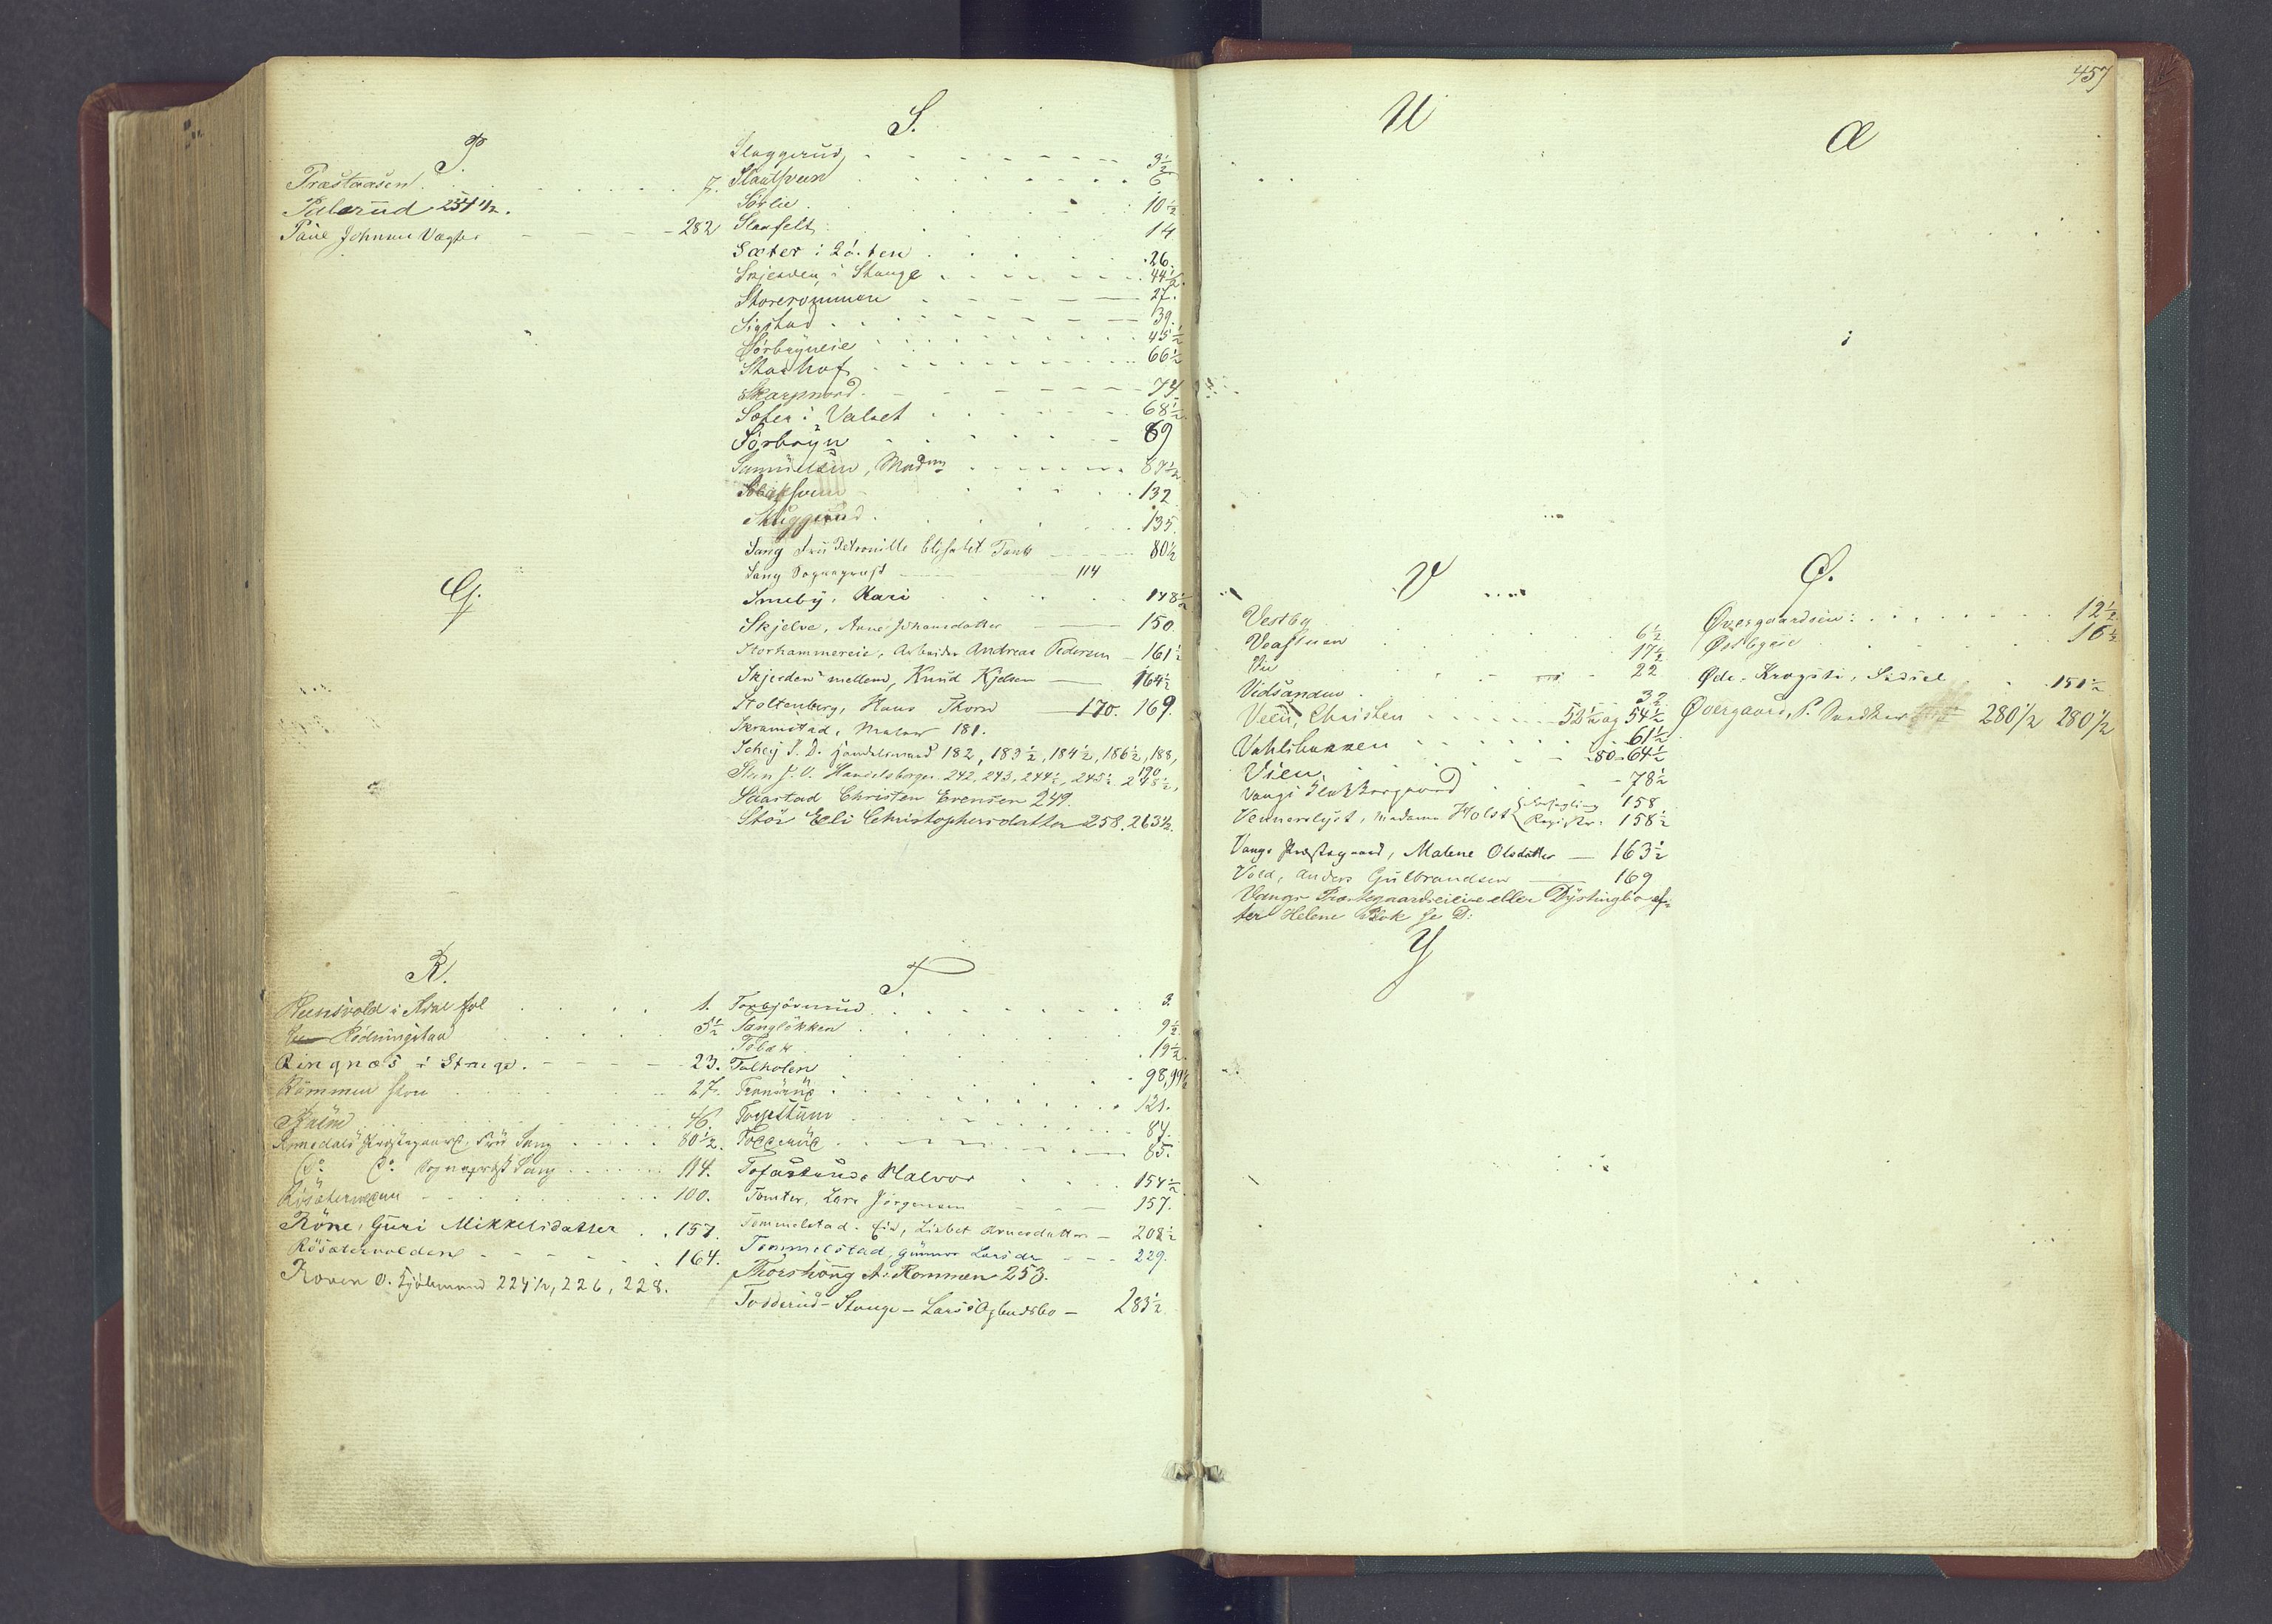 P.
Præstaasen . . . 7.
Pålerud 251 1/2.
Paul Johnsen Vagter — 282
Q.
R.
i Adal fol . . . 1.
Rødningstad . . . 5 1/2
Ringnæs i Stange . — 23.
Rommen store . . . 27.
46.
Romedals Præstegaard, Frü Sang . . . 80 1/2.
Do Do Sognepræst Sang . . . 114.
100.
Röne, Guri Mikkelsdatter . . 157.
Rösætervolden . . . 164.
Roven O. 224 1/2, 226, 228.
S.
Slaggerud . . . 3 1/2
6
Sörlie . . . 10 1/2
14
Sæter i Löiten . . . 26.
Skjerden i Stange . . . 44 1/2.
Storerommen . . . 27.
Sigstad . . . 39.
Sörbÿneie . . . 45 1/2
Starhof . . . 66 1/2
Skarpnord . . . 74
Sæter i Valset . . . 68 1/2
Sörbÿn . . . 69
Samuelsen, Madm . . . 87 1/2
132
Skuggerud . . . 135.
Sang Frü Petronille Elisabet Tank — 80 1/2
Sang Sognepræst — 114
Smebÿ, Kari . . . 148 1/2
Skjelve, Anne Johansdatter — 150.
Storhammereie, Arbeider Andreas Pedersen — 161 1/2
Skjerden mellem, Knud Kjelsen — 164 1/2
Stoltenberg, Hans Thors — 170. 169.
Skramstad, Malar 181.
Schej J. D. Handelsmand 182, 183 1/2, 184 1/2, 186 1/2, 188, 190
Steen J. V. Handelsborger. 242, 243, 244 1/2, 245 1/2 248 1/2,
Saastad Christen Evensen 249.
Stör Eli Christophersdatter 258. 263 1/2.
T.
Torbjörnrud . . . 3.
Tangløkken . . . 9 1/2
Tobak . . . 19 1/2.
Tolholen . . . 98, 99 1/2
121.
84.
Todderud . . . 85.
Tofastrud Halvor . . . 154 1/2
Tomter, Lars Jörgensen — 157.
Tommelstad. Eie, Lisbet Arnesdatter — 208 1/2
Tommelstad, Gunnor Larsdr — 229.
Thorshaug A. Rommen 253.
Todderud - Stange - Lars — 283 1/2
457
U
V
Vestby . . . 6 1/2
17 1/2
Vie . . . 22
Vidsanden . . . 32
Veen, Christen . . . 52 1/2 og 54 1/2
Vahlsbakken . . . 61 1/2
Vien, . . . 80 - 64 1/2
Vangs Klokkergaard . . . 78 1/2
Vennerslÿst, Madame Holst Forsegling 158
Registr. 158 1/2
Vangs Præstegaard, Malene Olsdatter — 163 1/2
Vold, Anders Gulbrandsen — 169
Vangs Præstegaardseieie eller Dÿstingbo ef-
ter Helene Blok se D:
Y
Æ
Ø.
Øvergaardseie: . . . 12 1/2
Østbÿeie . . . 16 1/2
Øde-Krogsti, Sidsel . . 151 1/2
Øvergaard, P. 280 1/2 280 1/2